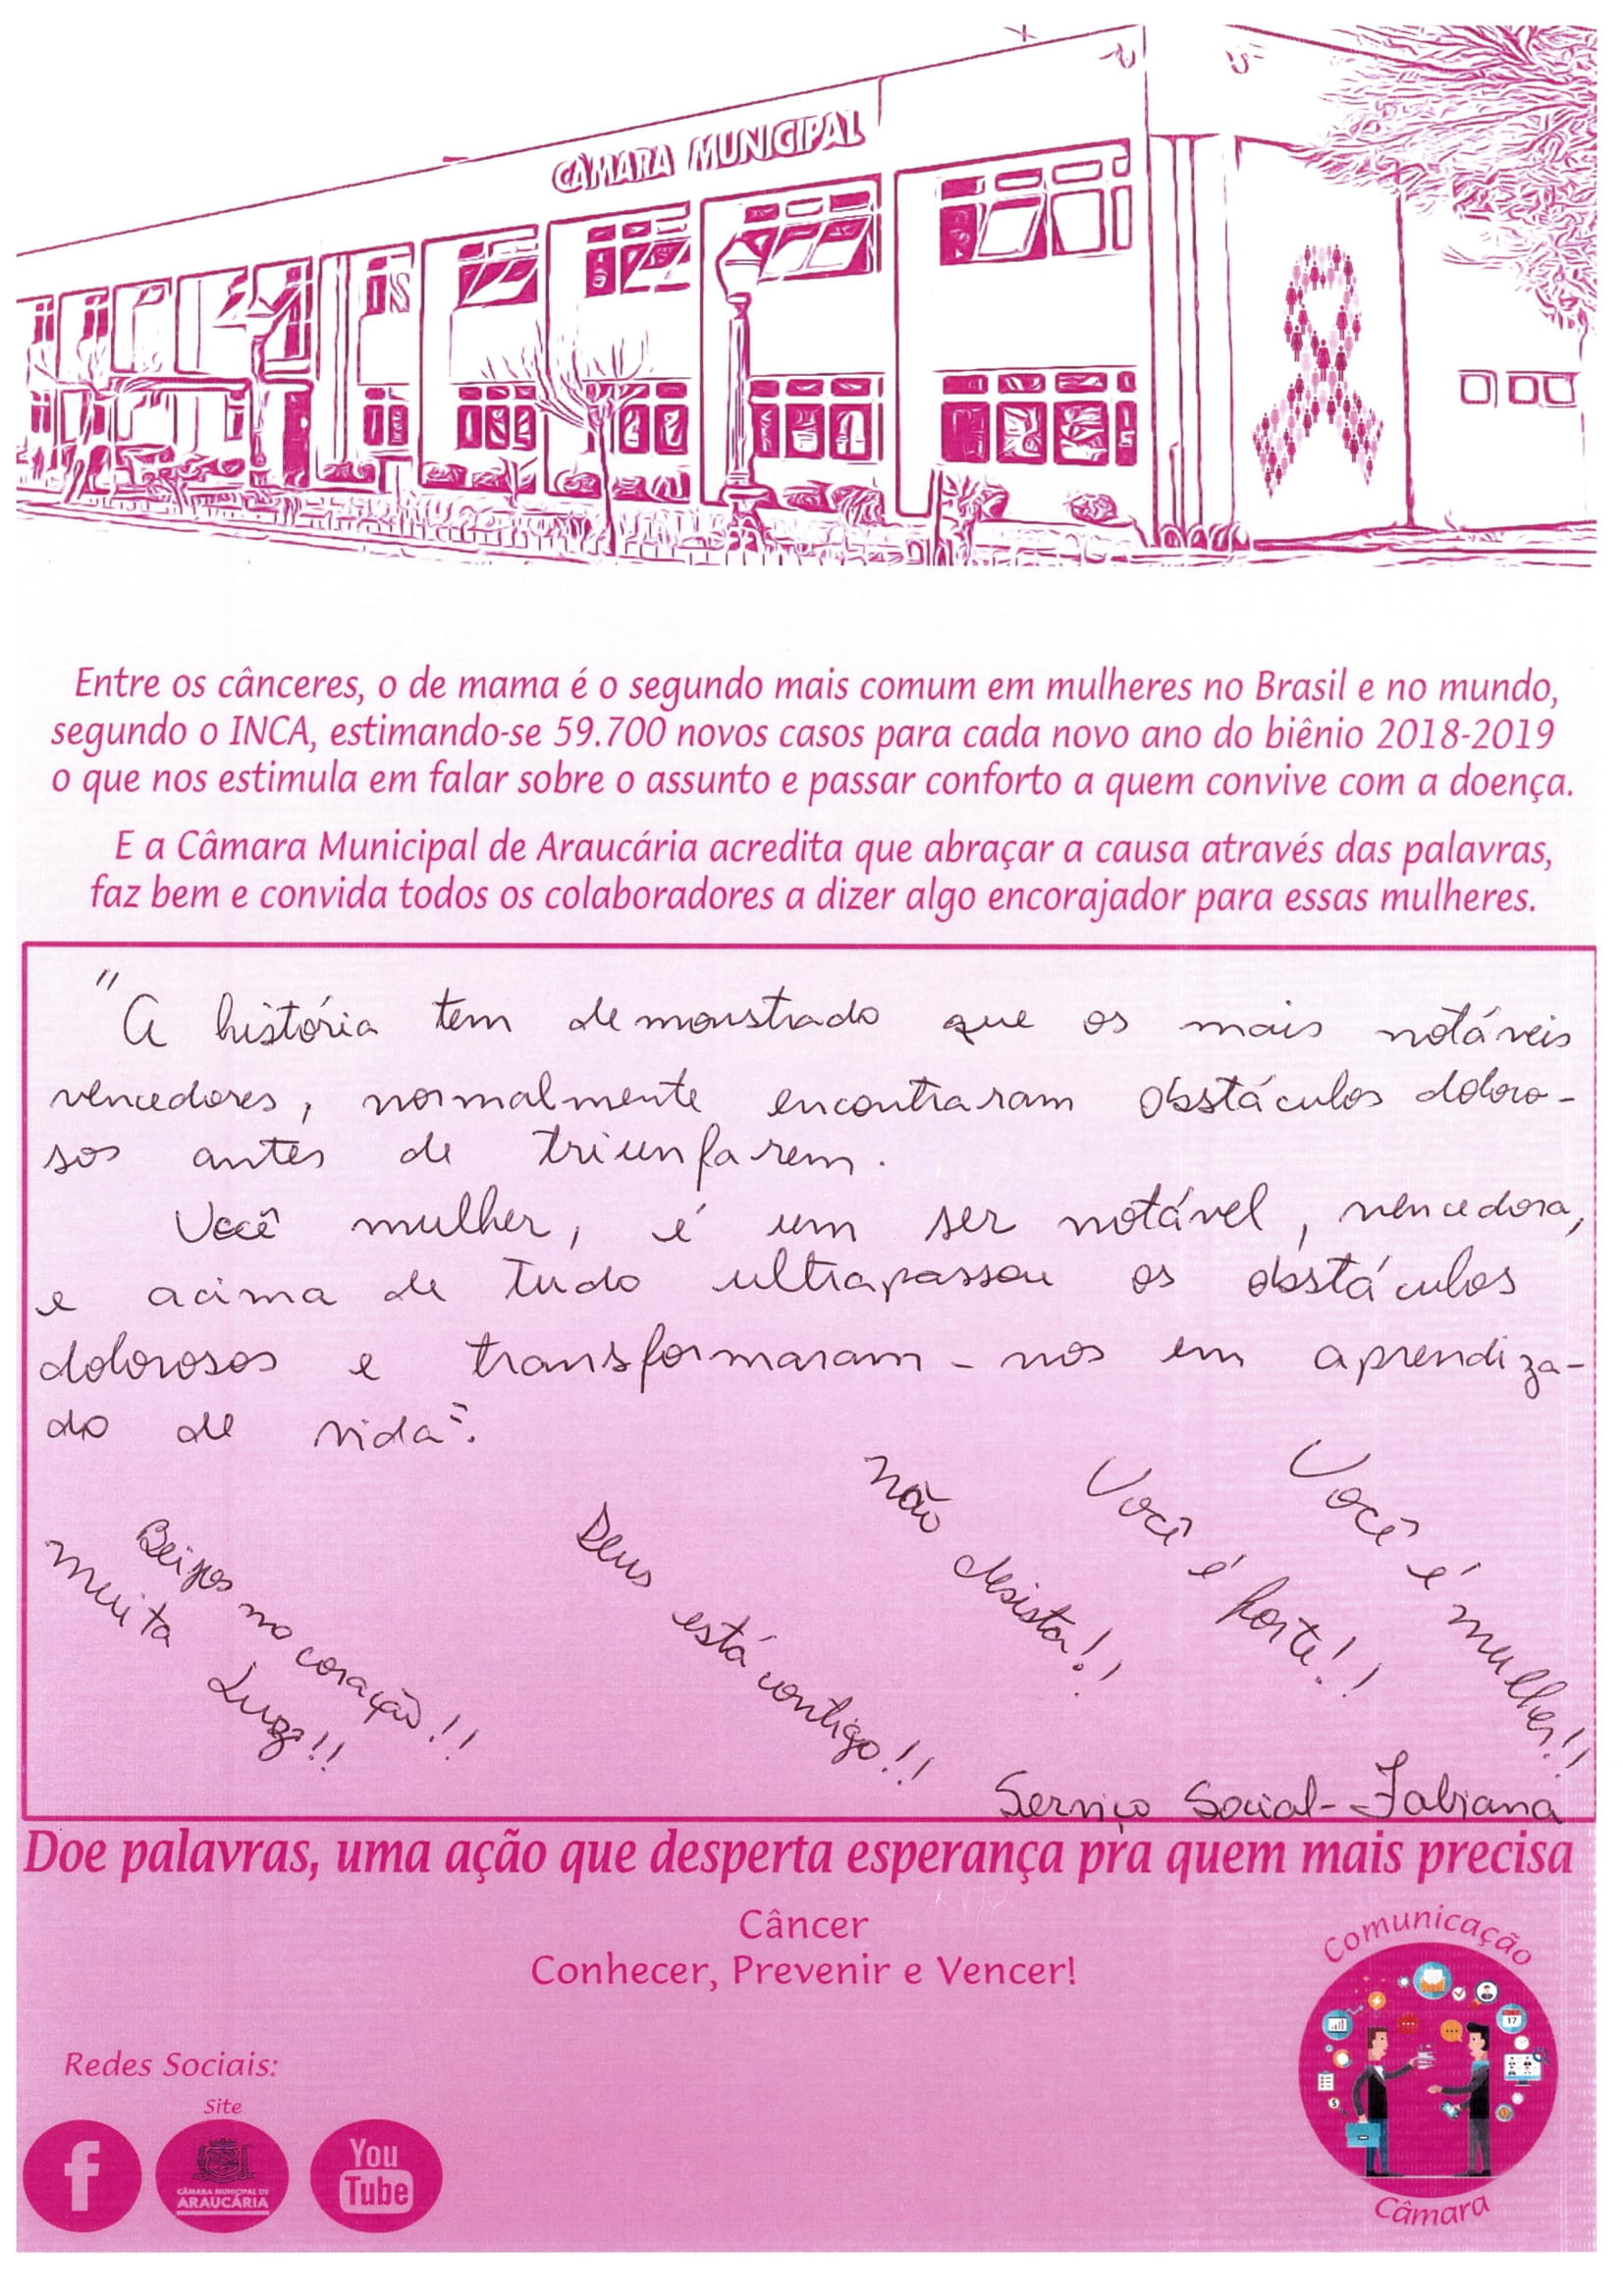 CÂMARA MUNICIPAL
Entre os cânceres, o de mama é o segundo mais comum em mulheres no Brasil e no mundo,
segundo o INCA, estimando-se 59.700 novos casos para cada novo ano do biênio 2018-2019
o que nos estimula em falar sobre o assunto e passar conforto a quem convive com a doença.
E a Câmara Municipal de Araucária acredita que abraçar a causa através das palavras,
faz bem e convida todos os colaboradores a dizer algo encorajador para essas mulheres.
"A história tem demonstrado que os mais notáveis
vencedores, normalmente encontraram obstáculos doloro-
sos antes de triunfarem.
Você mulher, é um ser notável, vencedora,
e acima de tudo ultrapassou os obstáculos
dolorosos e transformaram-nos em aprendiza-
do de vida".
Beijos no coração!!
Muita Luz!!
Deus está contigo!!
Não desista!!
Você é forte!!
Você é mulher!!
Serviço Social - Fabiana
Doe palavras, uma ação que desperta esperança pra quem mais precisa
Câncer
Conhecer, Prevenir e Vencer!
Comunicação
17
Câmara
Redes Sociais:
Site
f
CÂMARA MUNICIPAL DE
ARAUCÁRIA
You
Tube